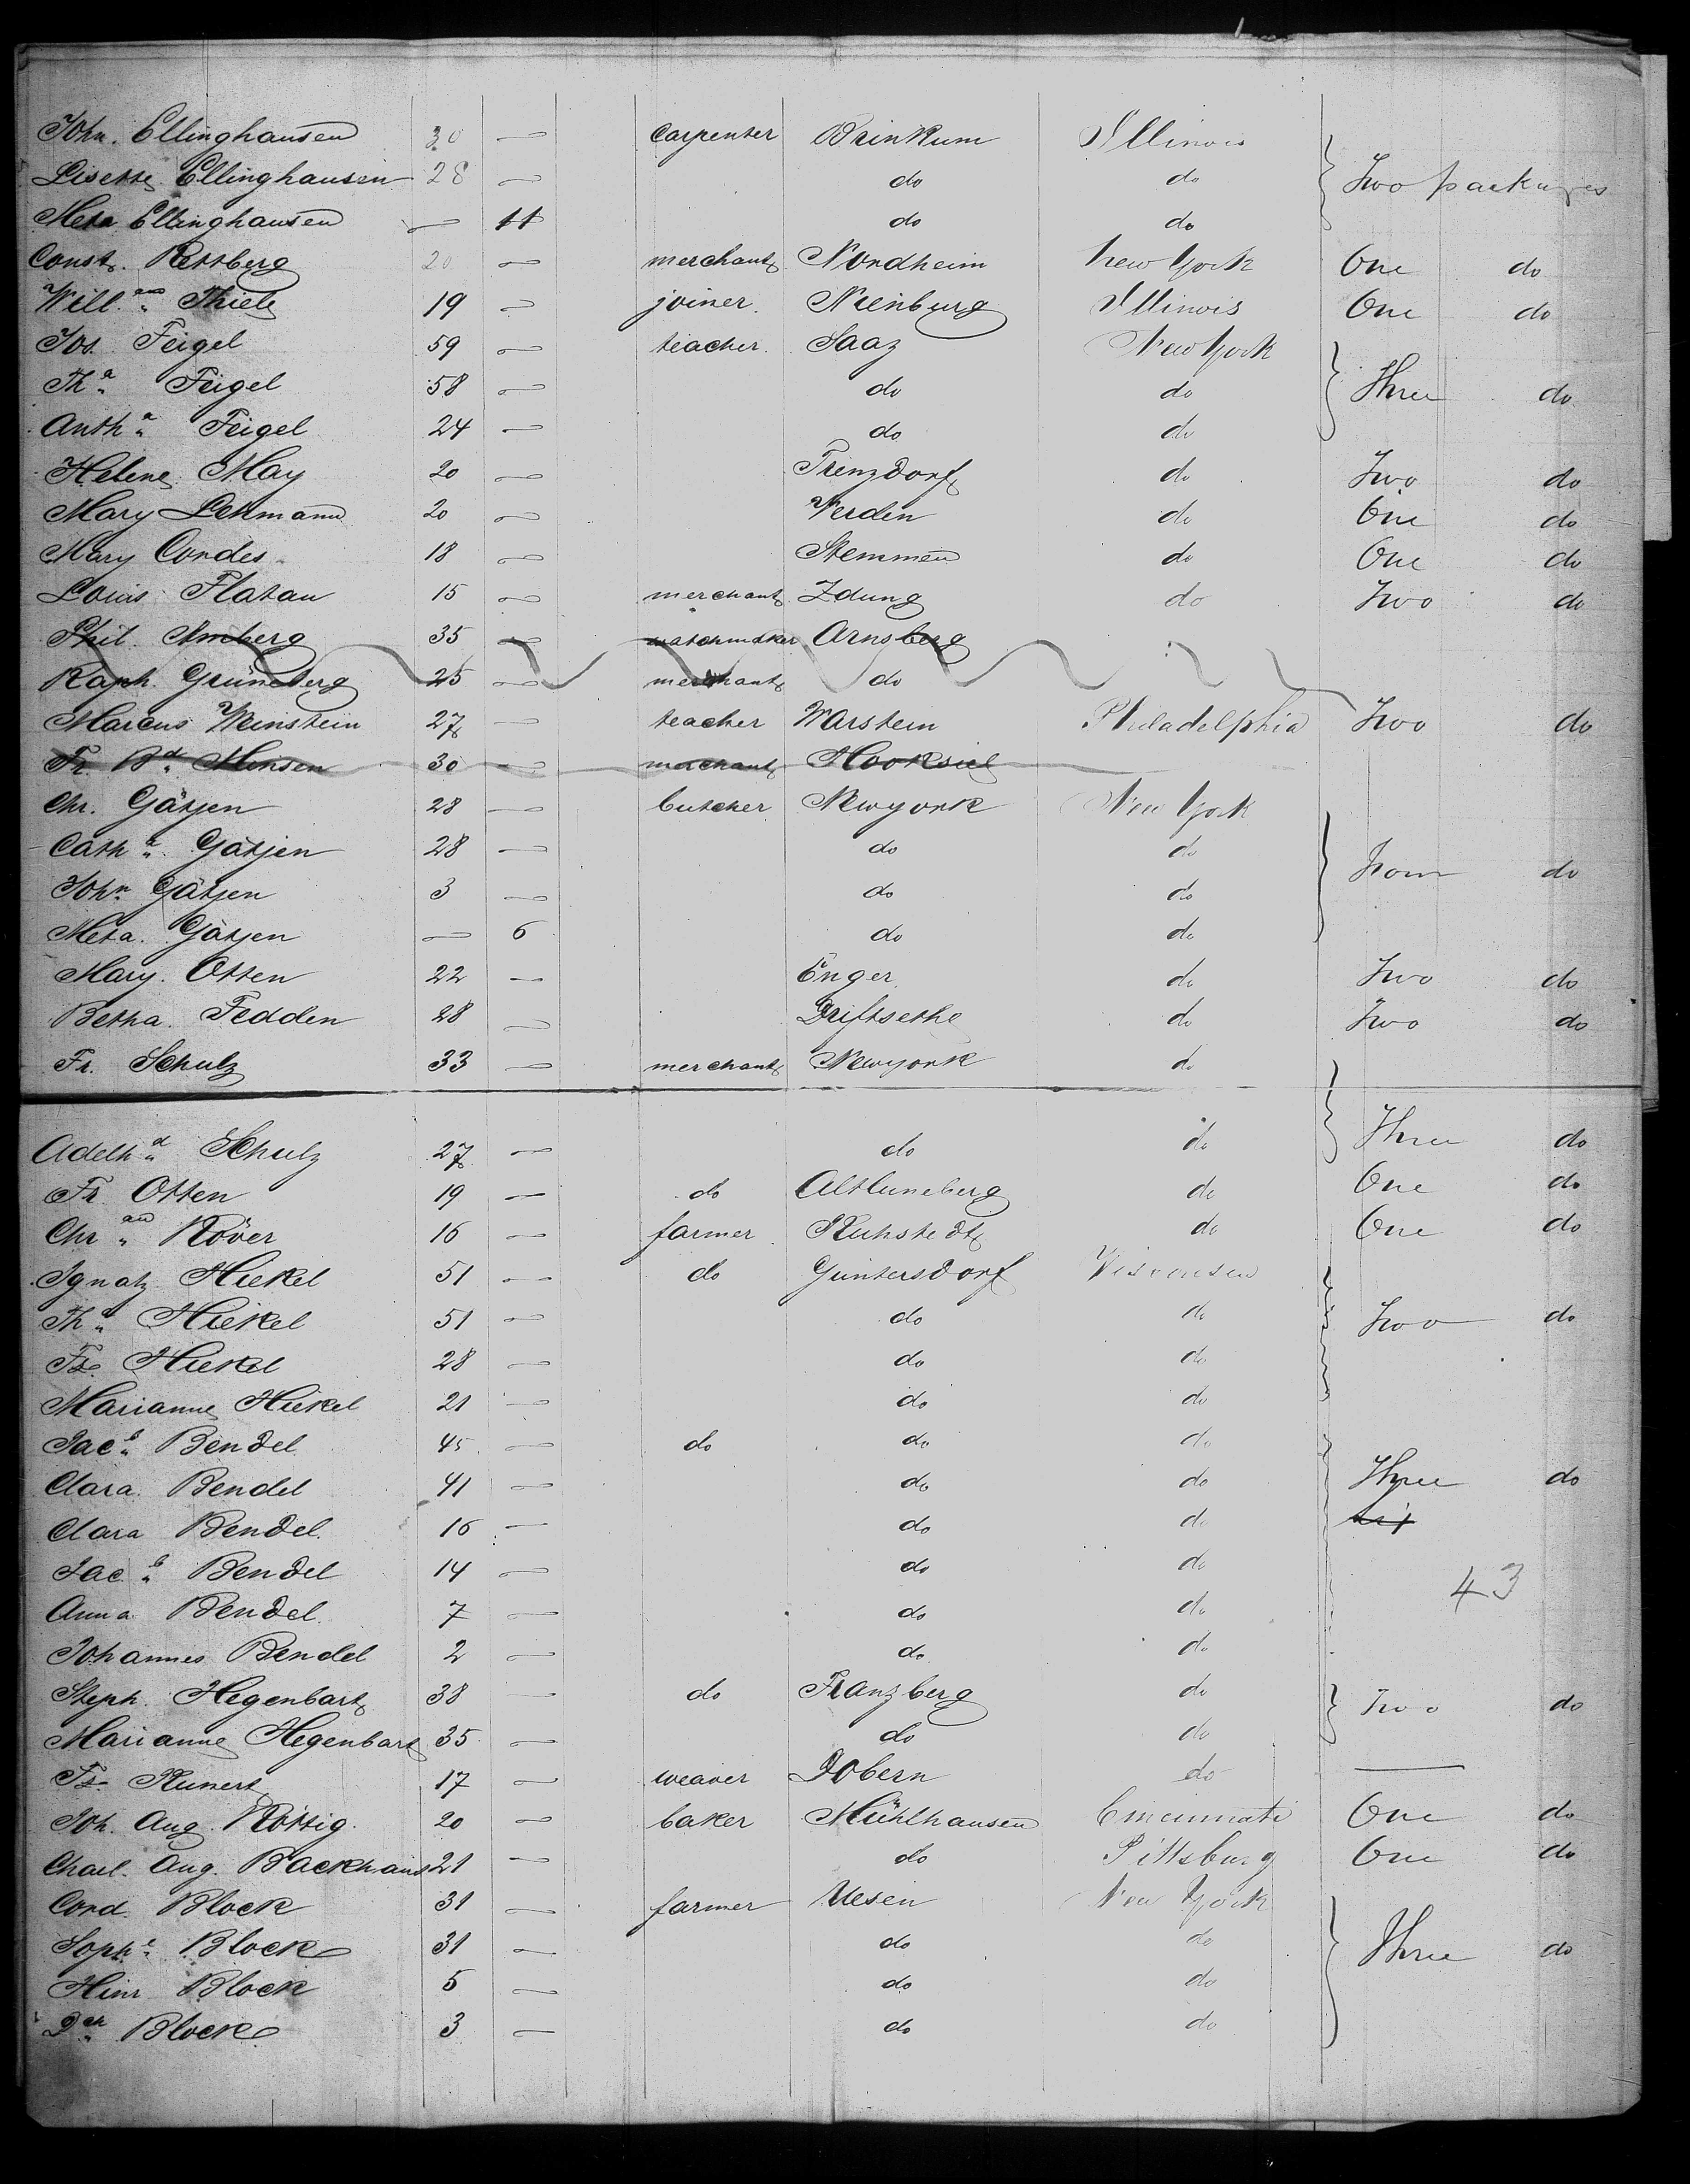 John. Ellinghausen 30 — carpenter Brinkum Illinois
Lisette Ellinghausen 28 — do do Two packages
Meta Ellinghausen — 11 do do
Const. Rettberg 20 — merchant Nordheim New York One do
Will.am Thiele 19 — joiner. Nienburg Illinois One do
Jos. Feigel 59 — teacher. Saaz New York
Th.a Feigel 58 — do do Three do
Anth.a Feigel 24 — do do
Helene May 20 — Trenzdorf do Two do
Mary Lehmann 20 — Verden do One do
Mary Cordes 18 — Stemmen do One do
Louis Flatau 15 — merchant Zdung do Two do
Phil. Amberg 35 — watchmaker Arnsberg
Raph. Grüneberg 25 — merchant do
Marcus Weinstein 27 — teacher Warstein Philadelphia Two do
Fr. B.d Minsen 30 — merchant Hooksiel
Chr. Gätjen 28 — butcher Newyork New York
Cath.a Gätjen 28 — do do do
John Gätjen 3 — do do
Meta. Gätjen — 6 do do
Mary. Otten 22 — Enger do Two do
Betha. Fedden 28 — Driftsethe do Two do
Fr. Schulz 33 — merchant Newyork do
Adelh.d Schulz 27 — do do Three do
Fr. Otten 19 — do Altluneberg do One do
Chr.an Röver 16 — farmer Kuhstedt do One do
Ignatz Hiekel 51 — do Guntersdorf Wisconsen
Th.a Hiekel 51 — do do Two do
Fz. Hiekel 28 — do do
Marianne Hiekel 21 — do do
Jac.b Bendel 45 — do do do
Clara Bendel 41 — do do Three do
Clara Bendel 16 — do do
Jac.b Bendel 14 — do do 43
Anna Bendel 7 — do do
Johannes Bendel 2 — do do
Steph. Hegenbart 38 — do Franzberg do Two do
Marianne Hegenbart 35 — do do
Fz. Kunert 17 — weaver Dobern do —
Joh. Aug. Röttig 20 — baker Mühlhausen Cincinnati One do
Charl. Aug. Backhaus 21 — do Pittsburg One do
Cord Block 31 — farmer Uesen New York
Soph.e Block 31 — do do Three do
Hinr Block 5 — do do
Block 3 — do do